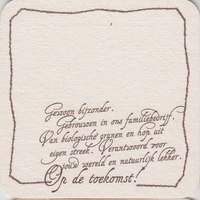 Gewoon bijzonder.
Gebrouwen in ons familiebedrijf.
Van biologische granen en hop uit
eigen streek. Verantwoord voor
jouw wereld en natuurlijk lekker.
Op de toekomst!